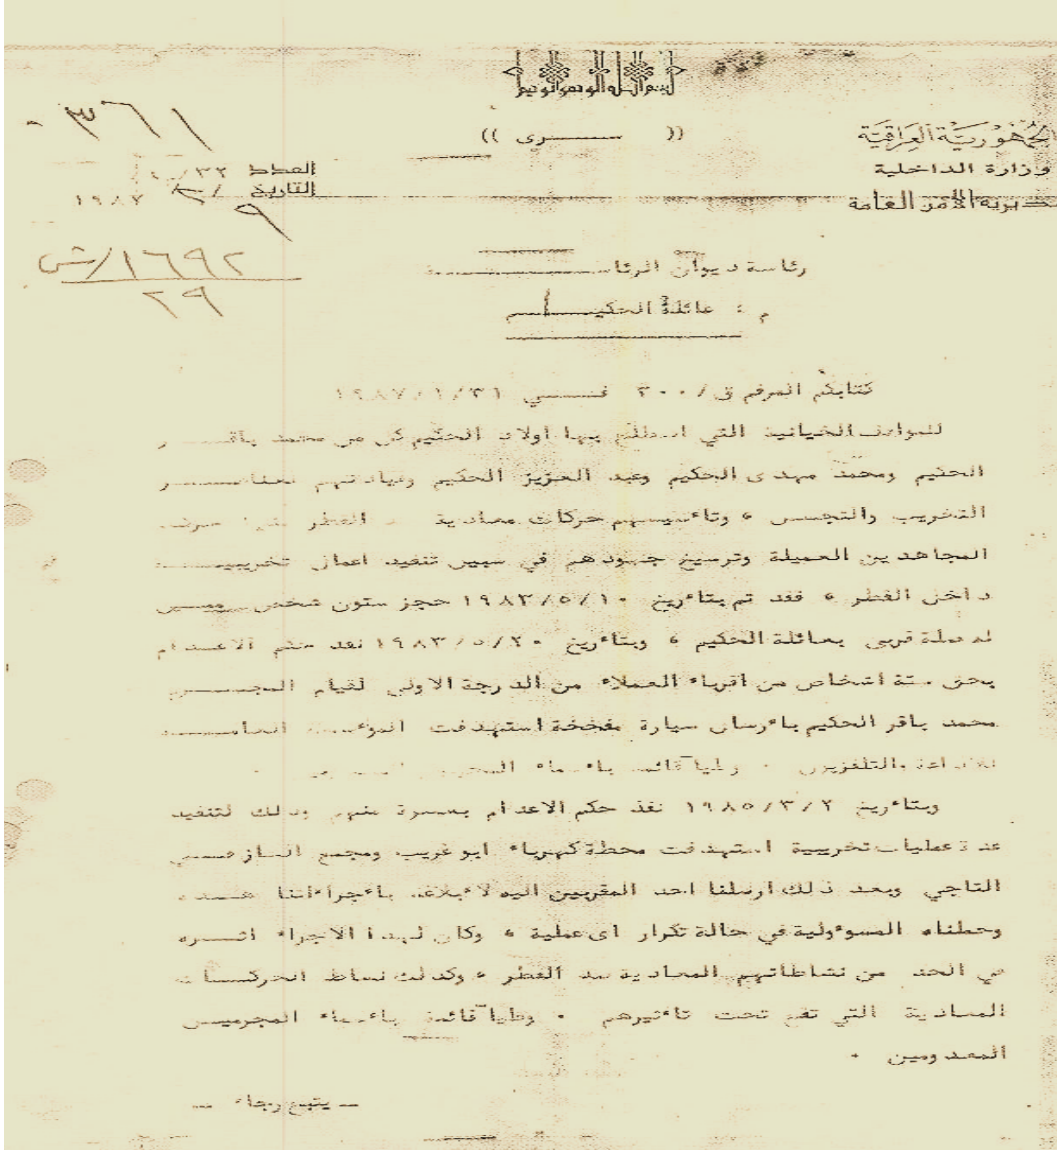 بسم الله الرحمن الرحيم
الجمهورية العراقية
وزارة الداخلية
مديرية الأمن العامة
(( ســـرى ))
٣٦١
العدد
التاريخ
١٩٨٧
٩
١٦٩٢/ش
٢٩
رئاسة ديوان الرئاســـة
م : عائلة الحكيـــم
كتابكم المرقم ق/٣٠٠ فـــي ١٩٨٧/١/٣١
للمواقف الخيانية التي اضطلع بها اولاد الحكيم كل من محمد باقـــر
الحكيم ومحمد مهدى الحكيم وعبد العزيز الحكيم وقيادتهم لعناصـــر
التخريب والتجسس ، وتأسيسهم حركات معادية القطر
المجاهدين العميلة وترسيخ جهودهم في سبيل تنفيذ اعمال تخريبيـــة
داخل القطر ، فقد تم بتأريخ ١٩٨٣/٥/١٠ حجز ستون شخص
له صلة قربى بعائلة الحكيم ، وبتأريخ ١٩٨٣/٥/٢٠ نفذ حكم الاعـــدام
بحق ستة اشخاص من اقرباء العملاء من الدرجة الاولى لقيام المجـــرم
محمد باقر الحكيم بأرسال سيارة مفخخة استهدفت المؤسسة العامـــة
للاذاعة والتلفزيون . وطيا قائمة بأسماء
وبتأريخ ١٩٨٥/٣/٢ نفذ حكم الاعدام بعشرة منهم وذلك لتنفيذ
عدة عمليات تخريبية استهدفت محطة كهرباء ابو غريب ومجمع الغاز في
التاجي وبعد ذلك ارسلنا احد المقربين اليه لأبلاغه بأجراءاتنا هـــذه
وحملناه المسوؤلية في حالة تكرار اى عملية ، وكان لهذا الاجراء اثـــره
في الحد من نشاطاتهم المعادية ضد القطر ، وكذلك نشاط الحركـــات
المعادية التي تقع تحت تأثيرهم . وطيا قائمة بأسماء المجرميـــن
المعدومين .
ــ يتبع رجاء ــ